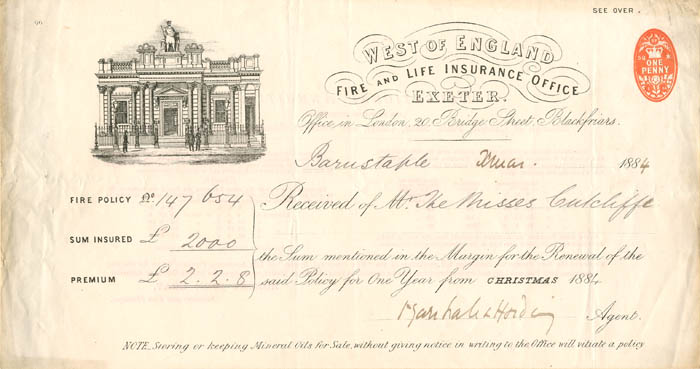 SEE OVER.
WEST OF ENGLAND
FIRE AND LIFE INSURANCE OFFICE
EXETER.
ONE PENNY
Office in London, 20, Bridge Street, Blackfriars.
Barnstaple Xmas. 1884
FIRE POLICY No 147654
Received of Mr. The Misses Cutcliffe
SUM INSURED £ 2000
the Sum mentioned in the Margin for the Renewal of the
PREMIUM £ 2.2.8
said Policy for One Year from CHRISTMAS 1884
Agent.
NOTE. Storing or keeping Mineral Oils for Sale, without giving notice in writing to the Office will vitiate a policy